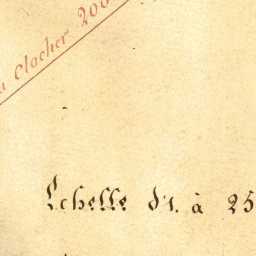 Clocher 200
Echelle d'1. à 25